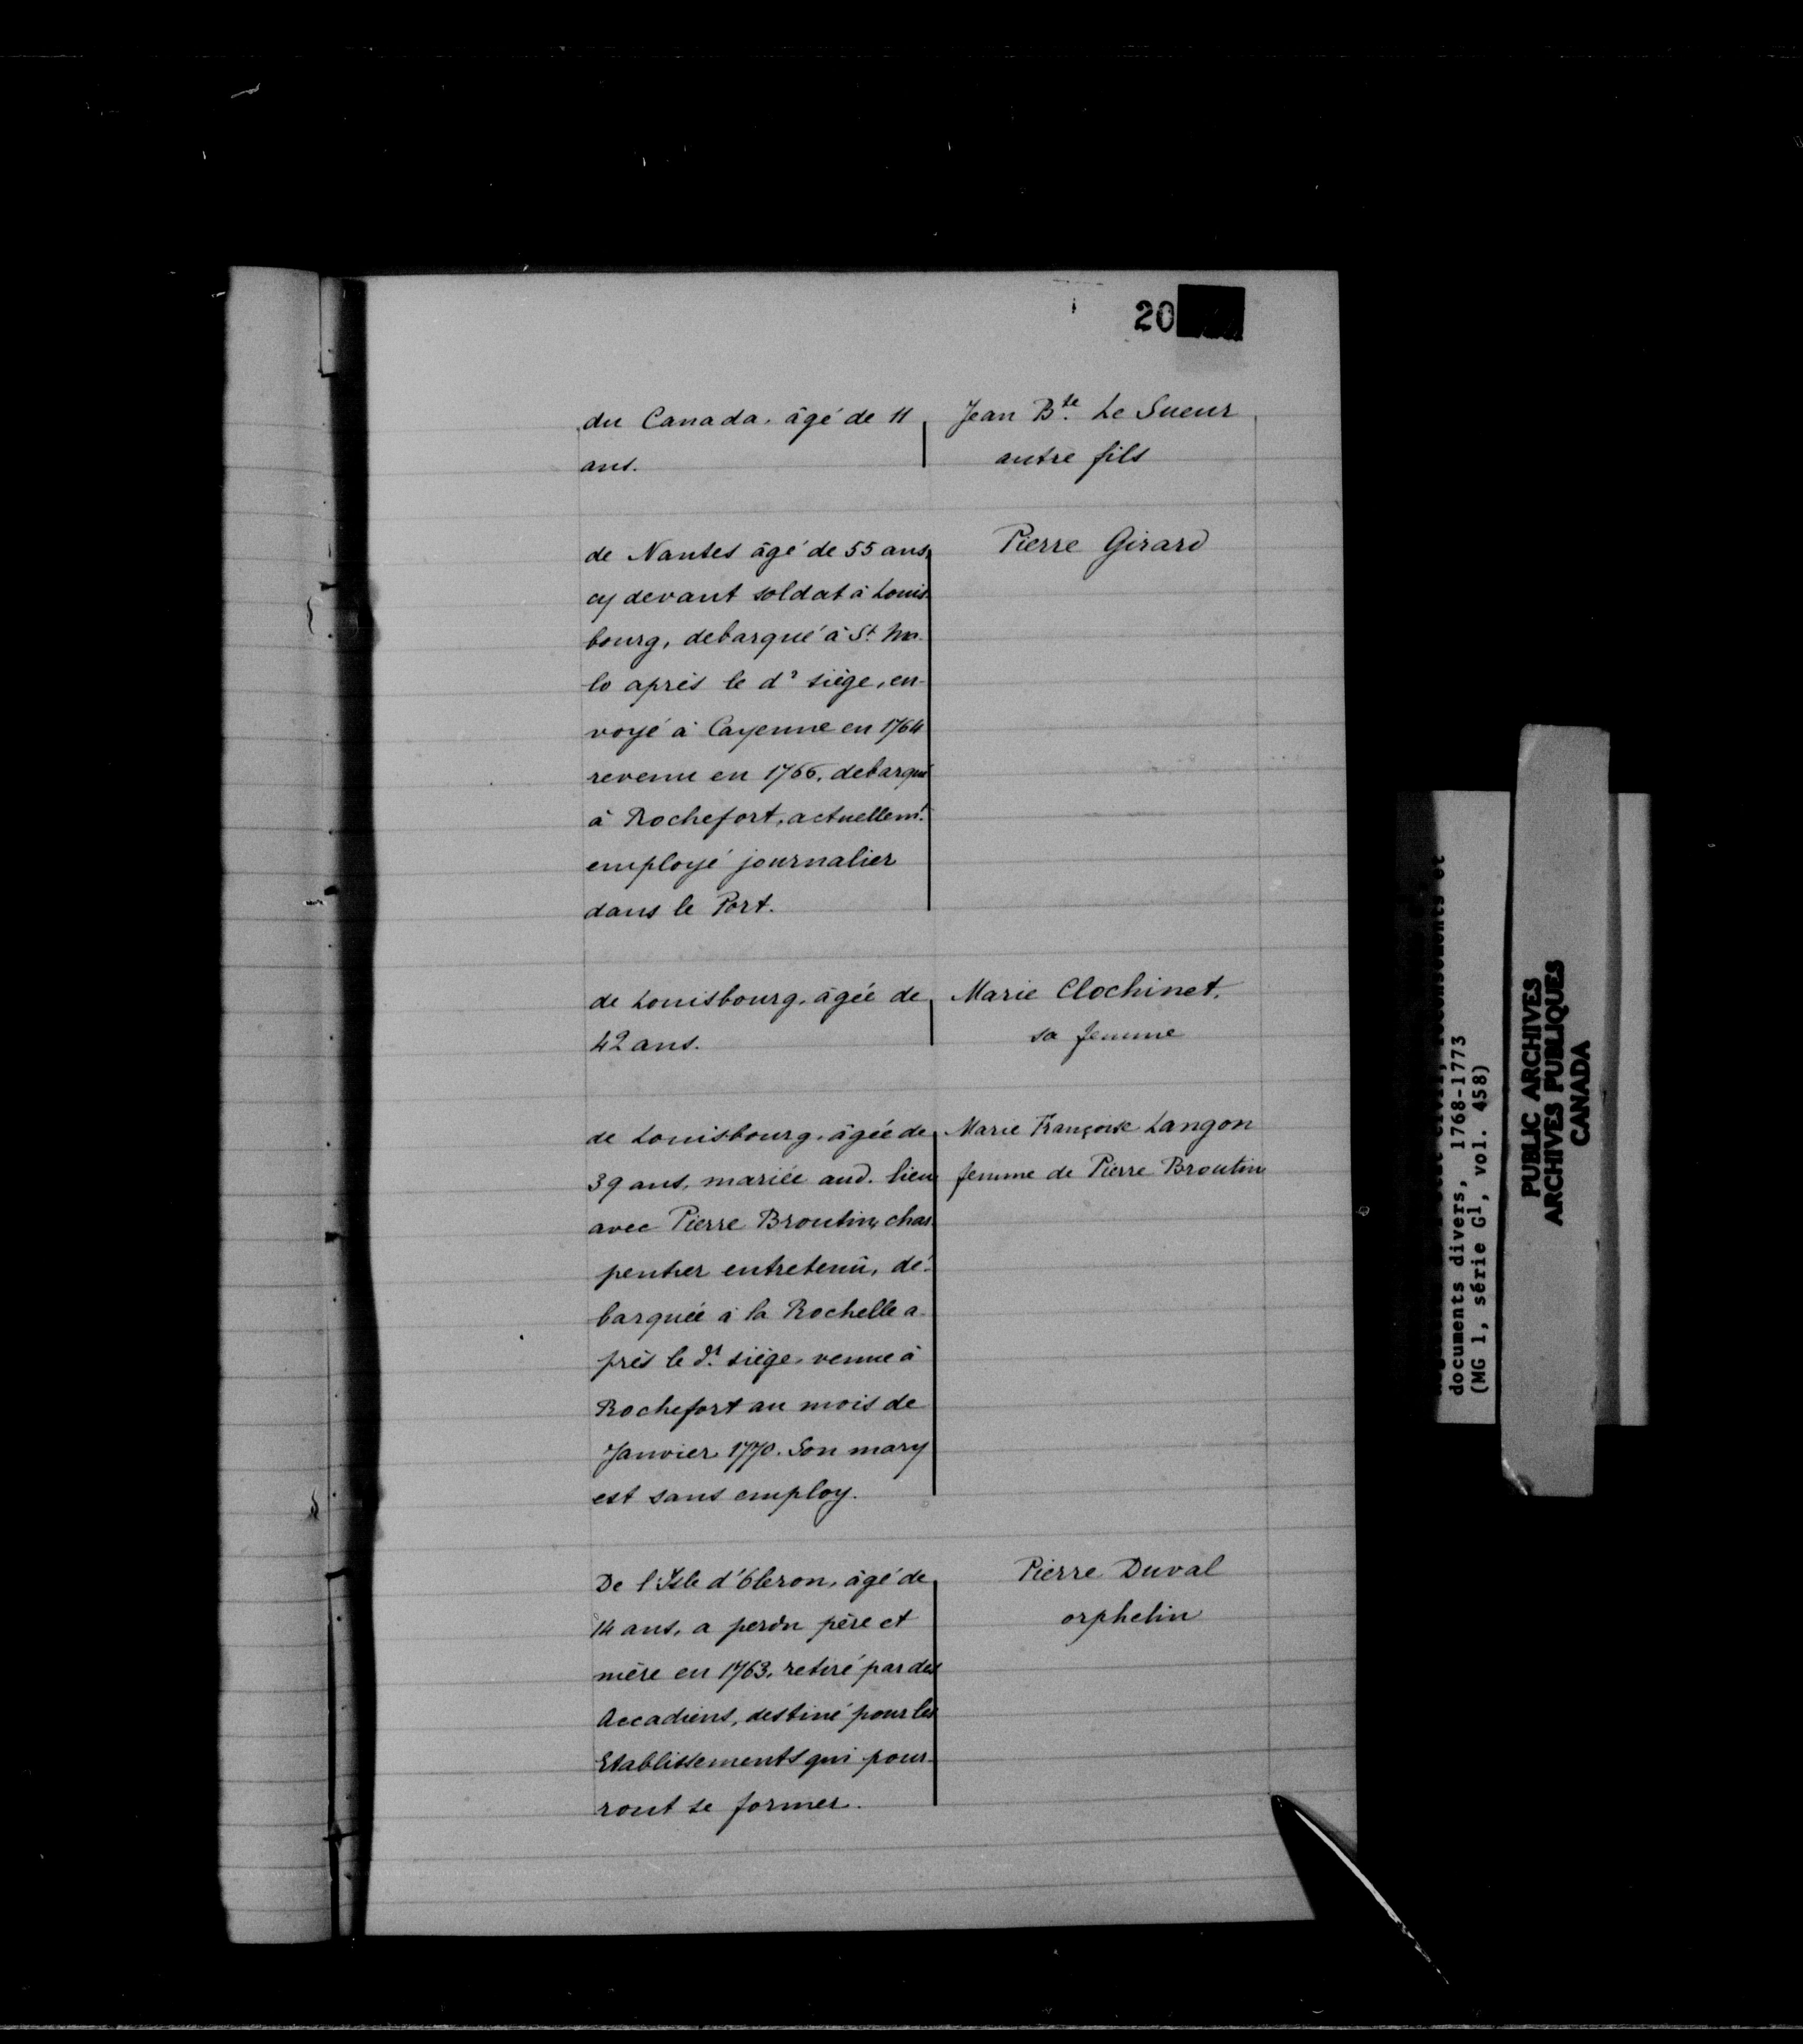 20
du Canada, âgé de 11
ans.
Jean Bte. Le Sueur
autre fils
de Nantes âgé de 55 ans,
cy devant soldat à Louis-
bourg, debarqué à St. Ma-
lo après le dt siège, en-
voyé à Cayenne en 1764
revenu en 1766, debarqué
à Rochefort, actuellemt.
employé journalier
dans le Port.
Pierre Girard
de Louisbourg, âgée de
42 ans.
Marie Clochinet,
sa femme
de Louisbourg, âgée de
39 ans, mariée aud. lieu
avec Pierre Broutin, char-
pentier entretenû, dé-
barquée à la Rochelle a-
près le dt. siège, venue à
Rochefort au mois de
Janvier 1770. Son mary
est sans employ.
Marie Françoise Langon
femme de Pierre Broutin
De l'Isle d'Oleron, âgé de
14 ans, a perdu père et
mère en 1763, retiré par des
Accadiens, destiné pour les
Etablissements qui pour-
ront se former.
Pierre Duval
orphelin
documents divers, 1768-1773
(MG 1, série G1, vol. 458)
PUBLIC ARCHIVES
ARCHIVES PUBLIQUES
CANADA